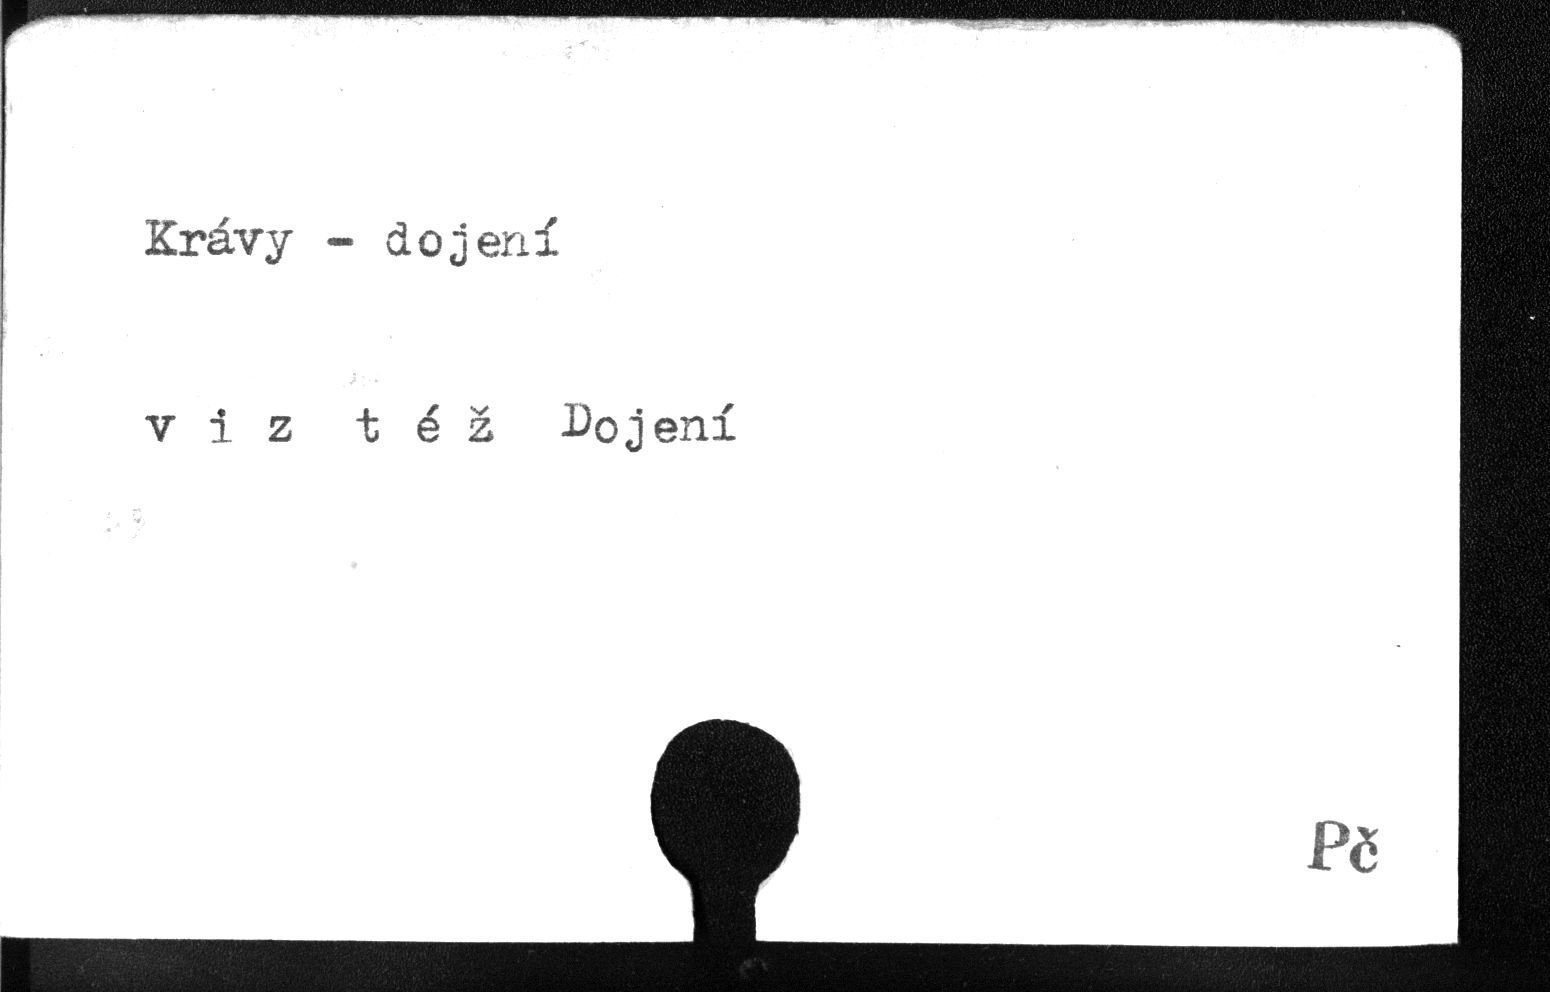 Krávy - dojení
v i z  t é ž  Dojení
Pč